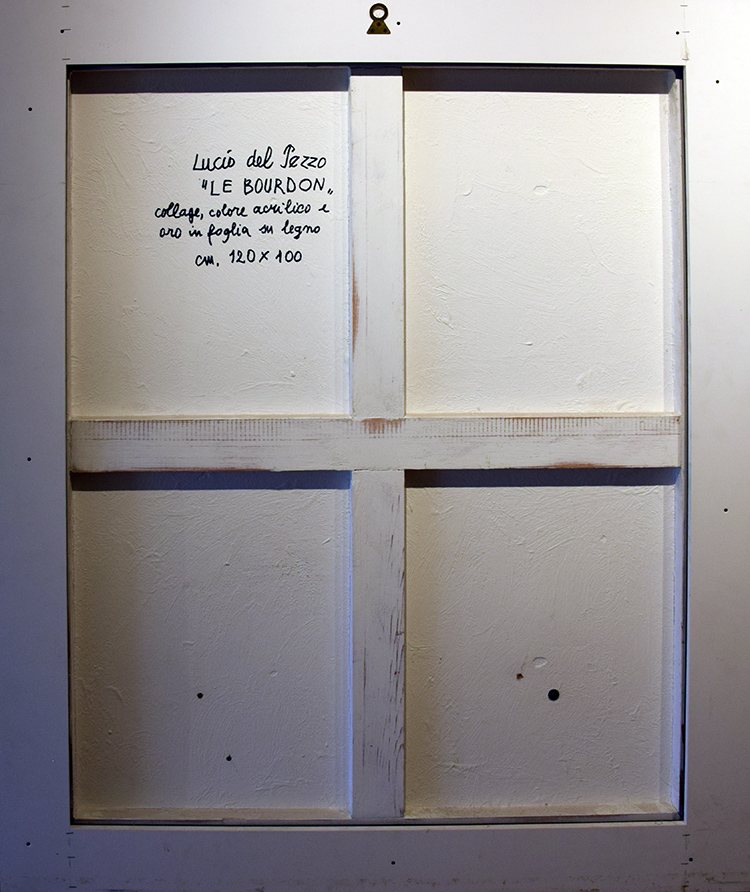 Lucio del Pezzo
"LE BOURDON"
collage, colore acrilico e
oro in foglia su legno
cm. 120 x 100